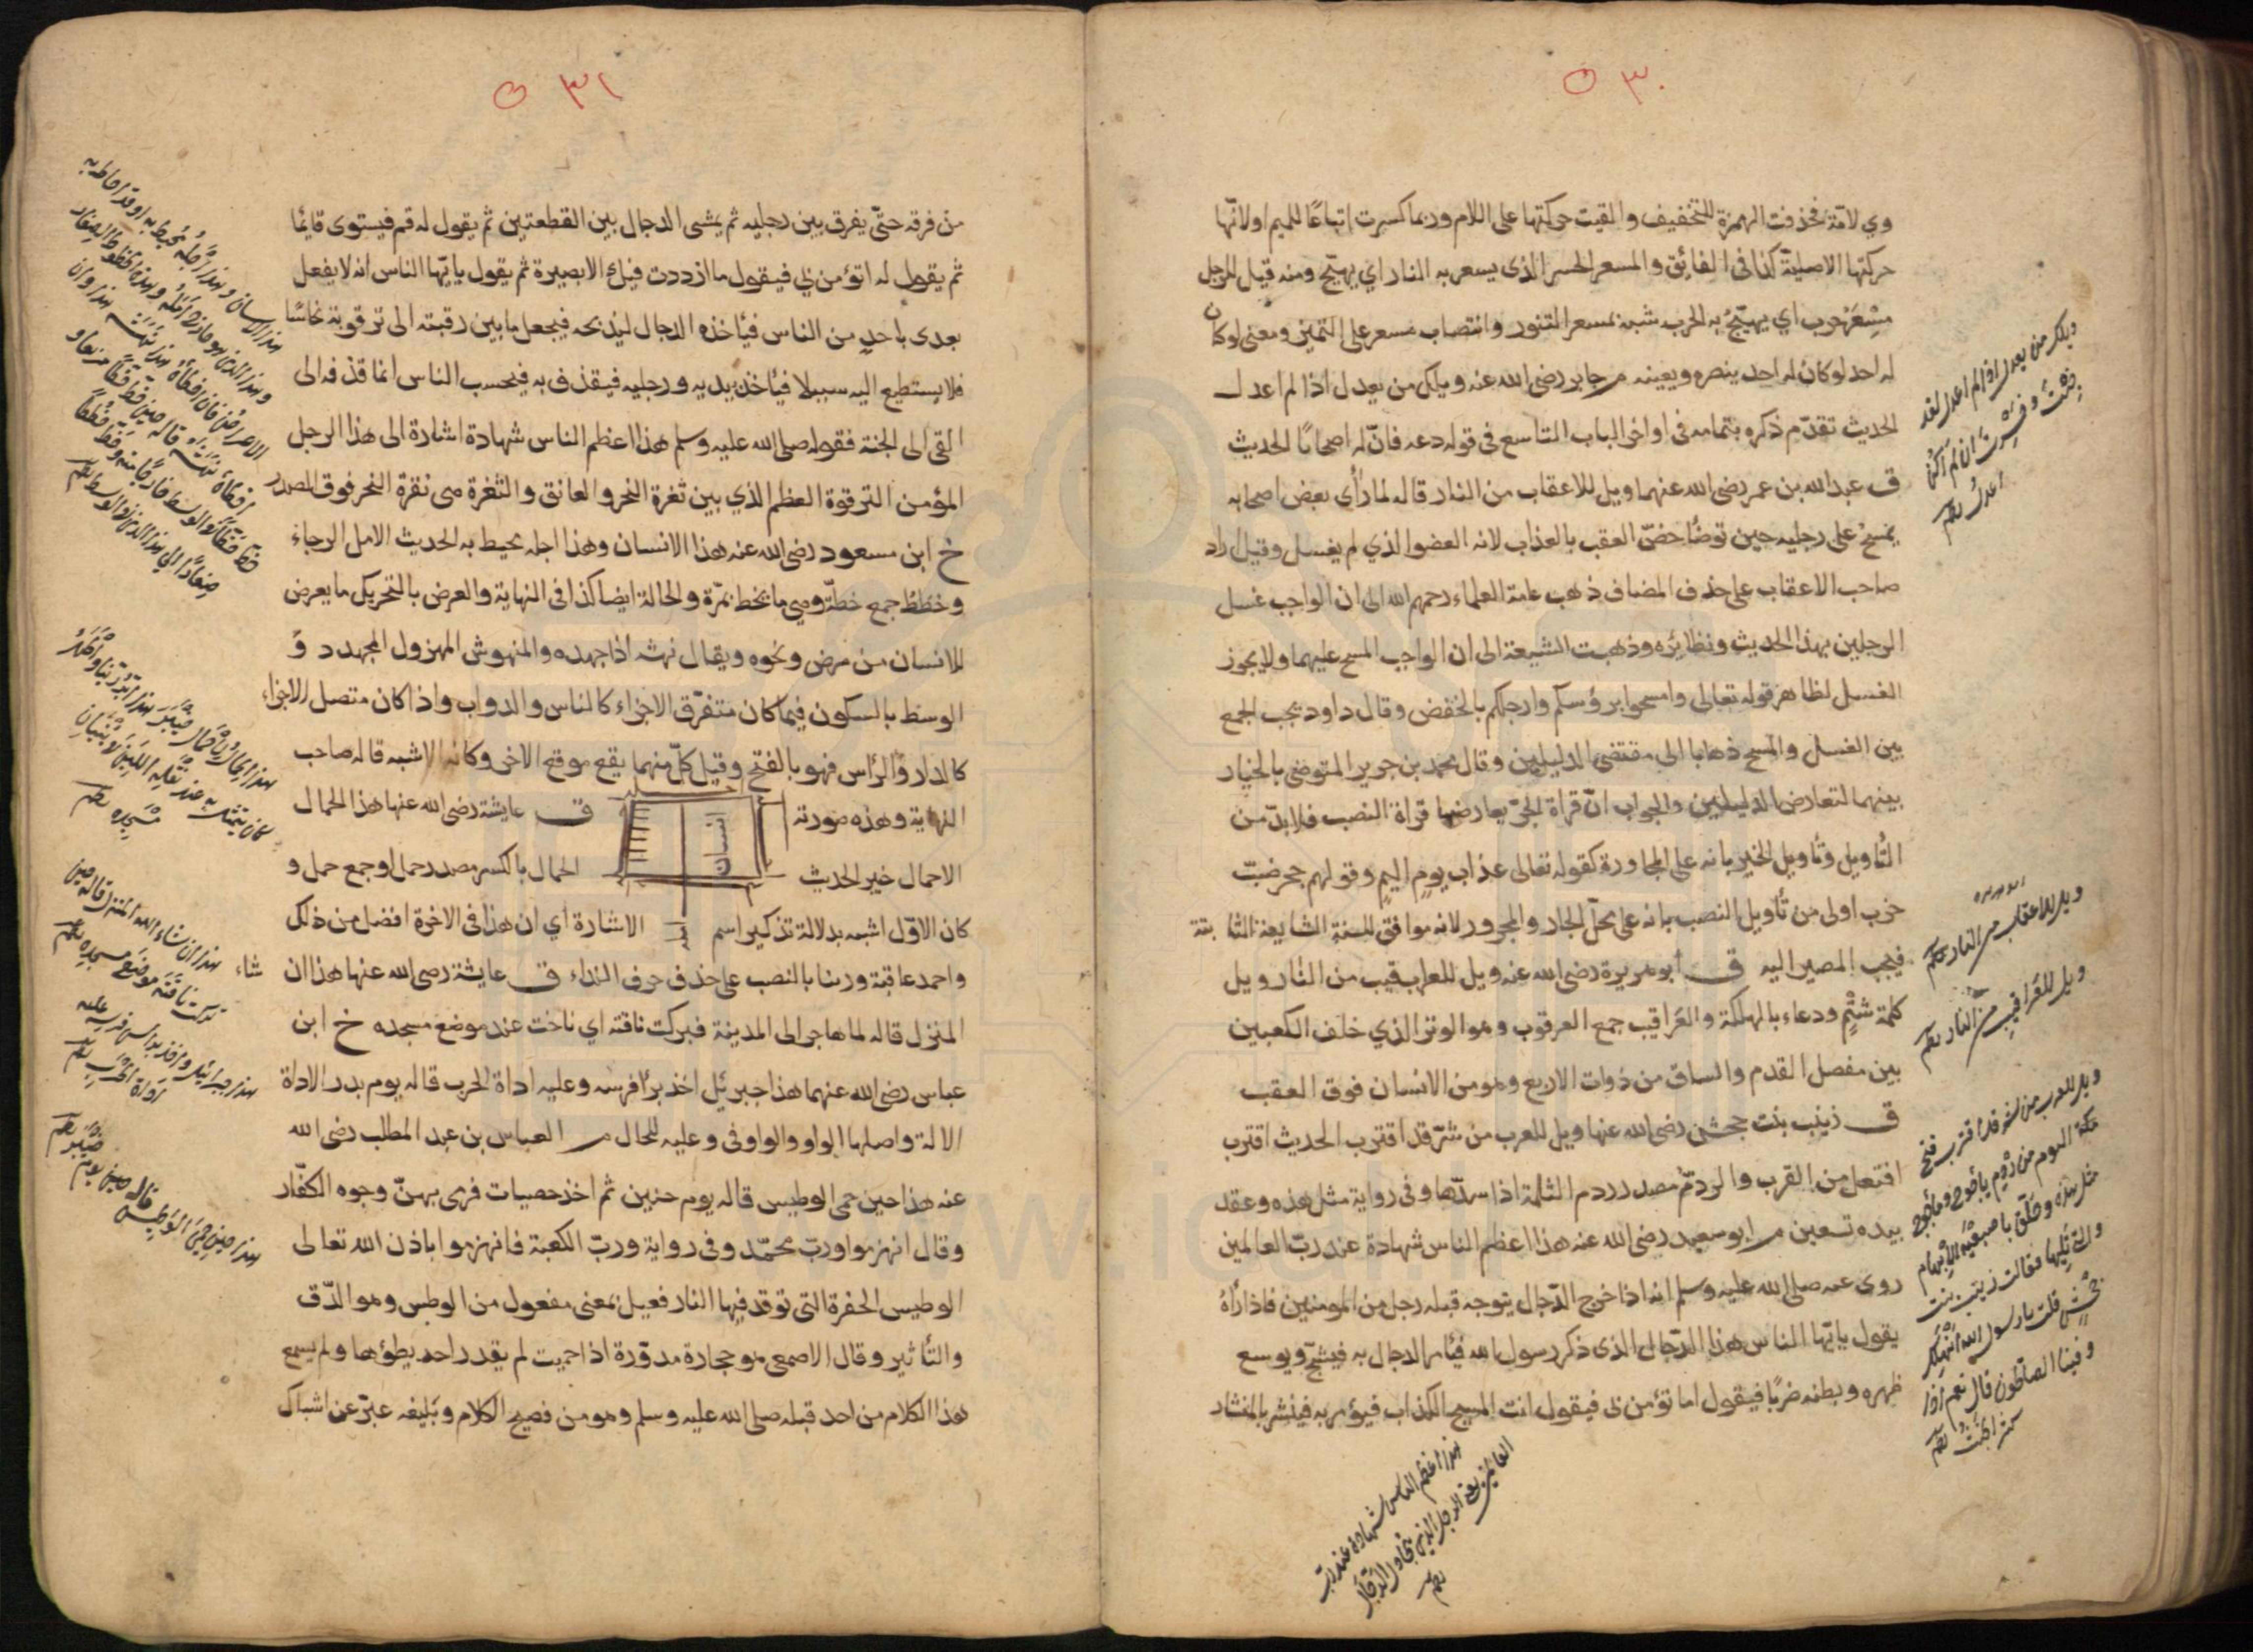 ٥٣٠
وي لامّة فحذفت الهمزة للتخفيف والقيت حركتها على اللام وربما كسرت اتباعًا للميم اولانّها
حركتها الاصلية كذا فى الفائق والمسعر الخسر الذى يسعر به النار اي يهيّج ومنه قيل للرجل
مِسْعَرُ حرب اي يهيّج به الحرب شبه بمسعر التنور وانتصاب مسعر على التميز ومعنى لوكان
له احد لوكان له احد ينصره ويعينه م جابر رضى الله عنه ويلك من يعدل اذا لم اعدل
الحديث تقدّم ذكره بتمامه فى اواخر الباب التاسع فى قوله دعه فانّ له اصحابًا الحديث
ق عبد الله بن عمر رضى الله عنهما ويل للاعقاب من النار قاله لما رأى بعض اصحابه
يمسح على رجليه حين توضّأ خصّ العقب بالعذاب لانه العضو الذي لم يغسل وقيل اراد
صاحب الاعقاب على حذف المضاف ذهب عامة العلماء رحمهم الله الى ان الواجب غسل
الرجلين بهذا الحديث ونظائره وذهبت الشيعة الى ان الواجب المسح عليهما ولا يجوز
الغسل لظاهر قوله تعالى وامسحوا برؤسكم وارجلكم بالخفض وقال داود يجب الجمع
بين الغسل والمسح ذهابا الى مقتضى الدليلين وقال محمد بن جرير المتوضى بالخيار
بينهما لتعارض الدليلين والجواب انّ قراة الجرّ يعارضها قراة النصب فلا بدّ من
التأويل وتأويل الخير بانه على المجاورة كقوله تعالى عذاب يومٍ اليمٍ وقولهم جحر ضبّ
خرب اولى من تأويل النصب بانه على محلّ الجار والمجرور لانه موافق للسنة الشايعة الثابتة
فيجب المصير اليه ق ابو هريرة رضى الله عنه ويل للعراقيب من النار ويل
كلمة شتمٍ ودعاء بالهلكة والعَراقيب جمع العرقوب وهو الوتر الذي خلف الكعبين
بين مفصل القدم والساق من ذوات الاربع وهو من الانسان فوق العقب
ق زينب بنت جحش رضى الله عنها ويل للعرب من شرّ قد اقترب الحديث اقترب
افتعل من القرب والردم مصدر ردم الثلمة اذا سدّها وفى رواية مثل هذه وعقد
بيده تسعين م ابو سعيد رضى الله عنه هذا اعظم الناس شهادة عند ربّ العالمين
روى عنه صلى الله عليه وسلم انه اذا خرج الدّجال يتوجه قبله رجل من المومنين فاذا رأهُ
يقول يا يّها الناس هذا الدّجال الذى ذكر رسول الله فيأمر الدجال به فيشجّ ويوسع
ظهره وبطنه ضربًا فيقول اما تؤمن بى فيقول انت المسيح الكذاب فيؤمر به فينشر بالمنشار
ويلك من يعدل اذا لم اعدل لقد
خِبْتَ وخَسِرْتَ ان لم اكُن
اعدلُ
ويل للاعقاب من النار
ويل للعَراقيبِ من النار
ويل للعرب من شر قد اقترب فتح
اليوم من رَدْمِ يأجوج ومأجوج
مثل هذه وحلّق باصبعيه الابهام
والتي تليها فقالت زينب بنت
جَحْشٍ قلت يا رسول الله انَهْلِكُ
وفينا الصالحون قال نعم اذا
كثر الخَبَثُ
هذا اعظم الناس شهادة عند ربّ
العالمين يعنى الرجل الذى يجادل الدّجّال
٥٣١
من فرقه حتّى يفرق بين رجليه ثم يمشى الدجال بين القطعتين ثم يقول له قم فيستوى قايمًا
ثم يقول له اتؤمن بي فيقول ما ازددت فيك الا بصيرة ثم يقول يا يّها الناس انه لا يفعل
بعدى باحدٍ من الناس فيأخذه الدجال ليذبحه فيجعل ما بين رقبته الى ترقوته نحاسًا
فلا يستطيع اليه سبيلا فيأخذ بيديه ورجليه فيقذف به فيحسب الناس انما قذفه الى
القى الى الجنة فقوله صلى الله عليه وسلم هذا اعظم الناس شهادة اشارة الى هذا الرجل
المؤمن الترقوة العظم الذي بين ثغرة النحر والعاتق والثغرة هى نقرة النحر فوق الصدر
خ ابن مسعود رضى الله عنه هذا الانسان وهذا اجله محيط به الحديث الامل الرجاء
وخُططُ جمع خطّة وهى ما يخط بمرّة والحالة ايضا كذا فى النهاية والعرض بالتحريك ما يعرض
للانسان من مرض ونحوه ويقال نهشه اذا جهده والمنهوش المهزول المجهدد وَ
الوسط بالسكون فيما كان متفرّق الاجزاء كالناس والدواب واذا كان متصل الاجزاء
كالدار والرأس فهو بالفتح وقيل كلّ منهما يقع موقع الاخر وكانه الاشبه قاله صاحب
النهاية وهذه صورته ق عايشة رضى الله عنها هذا الحمال
انسان
الاحمال خير الحديث الحمال بالكسر مصدر حمل او جمع حمل و
كان الاوّل اشبه بدلالة تذكير اسم الاشارة اي ان هذا فى الاخرة افضل من ذلك
واحمد عاقبة وربنا بالنصب على حذف حرف النداء ق عايشة رضى الله عنها هذا ان
المنزل قاله لما هاجر الى المدينة فبركت ناقته اي ناخت عند موضع مسجده خ ابن
عباس رضى الله عنهما هذا جبرئيل اخذ برأس فرسه وعليه اداة الحرب قاله يوم بدر الاداة
الالة واصلها الواو والواو فى وعليه للحال م العباس بن عبد المطلب رضى الله
عنه هذا حين حمى الوطيس قاله يوم حنين ثم اخذ حصيات فرمى بهنّ وجوه الكفّار
وقال انهزموا وربّ محمّد وفى رواية وربّ الكعبة فانهزموا باذن الله تعالى
الوطيس الحفرة التى توقد فيها النار فعيل بمعنى مفعول من الوطس وهو الدّق
والتأثير وقال الاصمعى هو حجارة مدوّرة اذا حميت لم يقدر احد يطؤها ولم يسمع
هذا الكلام من احد قبله صلى الله عليه وسلم وهو من فصيح الكلام وبليغه عبّر عن اشباك
هذا الانسان وهذا اجَلُه مُحيطٌ به او قد احاط به
وهذا الذى هو خارج اَمَلُه وهذه الخُطَطُ الصِغار
الاعراض فان اخطأه هذا نَهَشَه هذا وان
اخطأه هذا نَهَشَه هذا
هذا ان شاء الله المنزل قاله حين
بركت ناقَتُه موضع مسجده
هذا جبرائيل اخذ برأس فرسه عليه
اداة الحرب
هذا حين حَمِيَ الوَطِيسُ قاله حين يوم
www.ical.ir